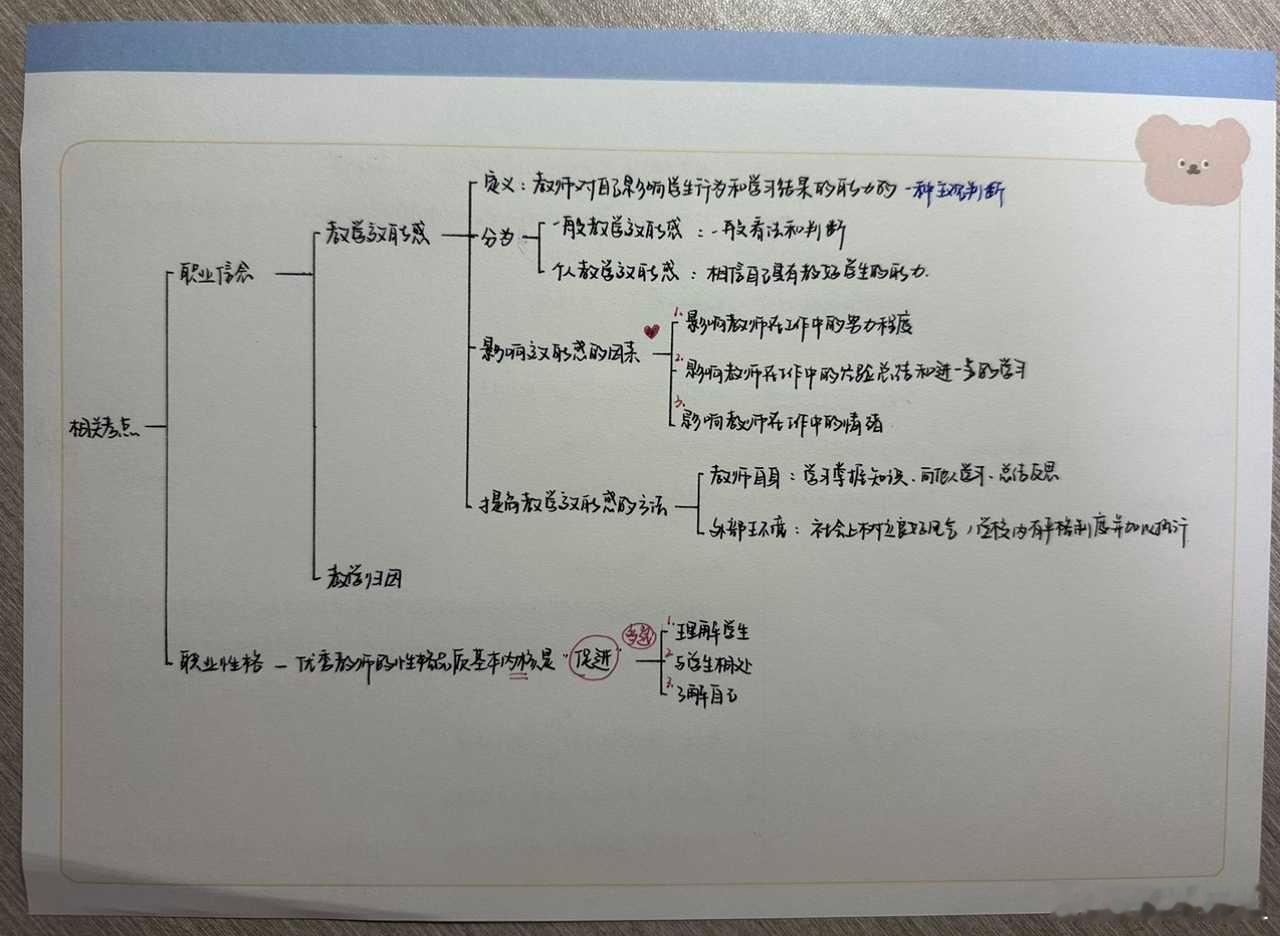 定义：教师对自己影响学生行为和学习结果的能力的一种主观判断
教学效能感
分为
一般教学效能感：一般看法和判断
职业信念
个人教学效能感：相信自己具有教好学生的能力.
影响效能感的因素
1.影响教师在工作中的努力程度
2.影响教师在工作中的经验总结和进一步的学习
3.影响教师在工作中的情绪
相关考点
教师自身：学习掌握知识、向他人学习、总结反思
提高教学效能感的方法
外部环境：社会上树立良好风气，学校内有严格制度并加以执行
教学归因
职业性格
优秀教师的性格品质基本内核是"促进"
多选
1.理解学生
2.与学生相处
3.了解自己